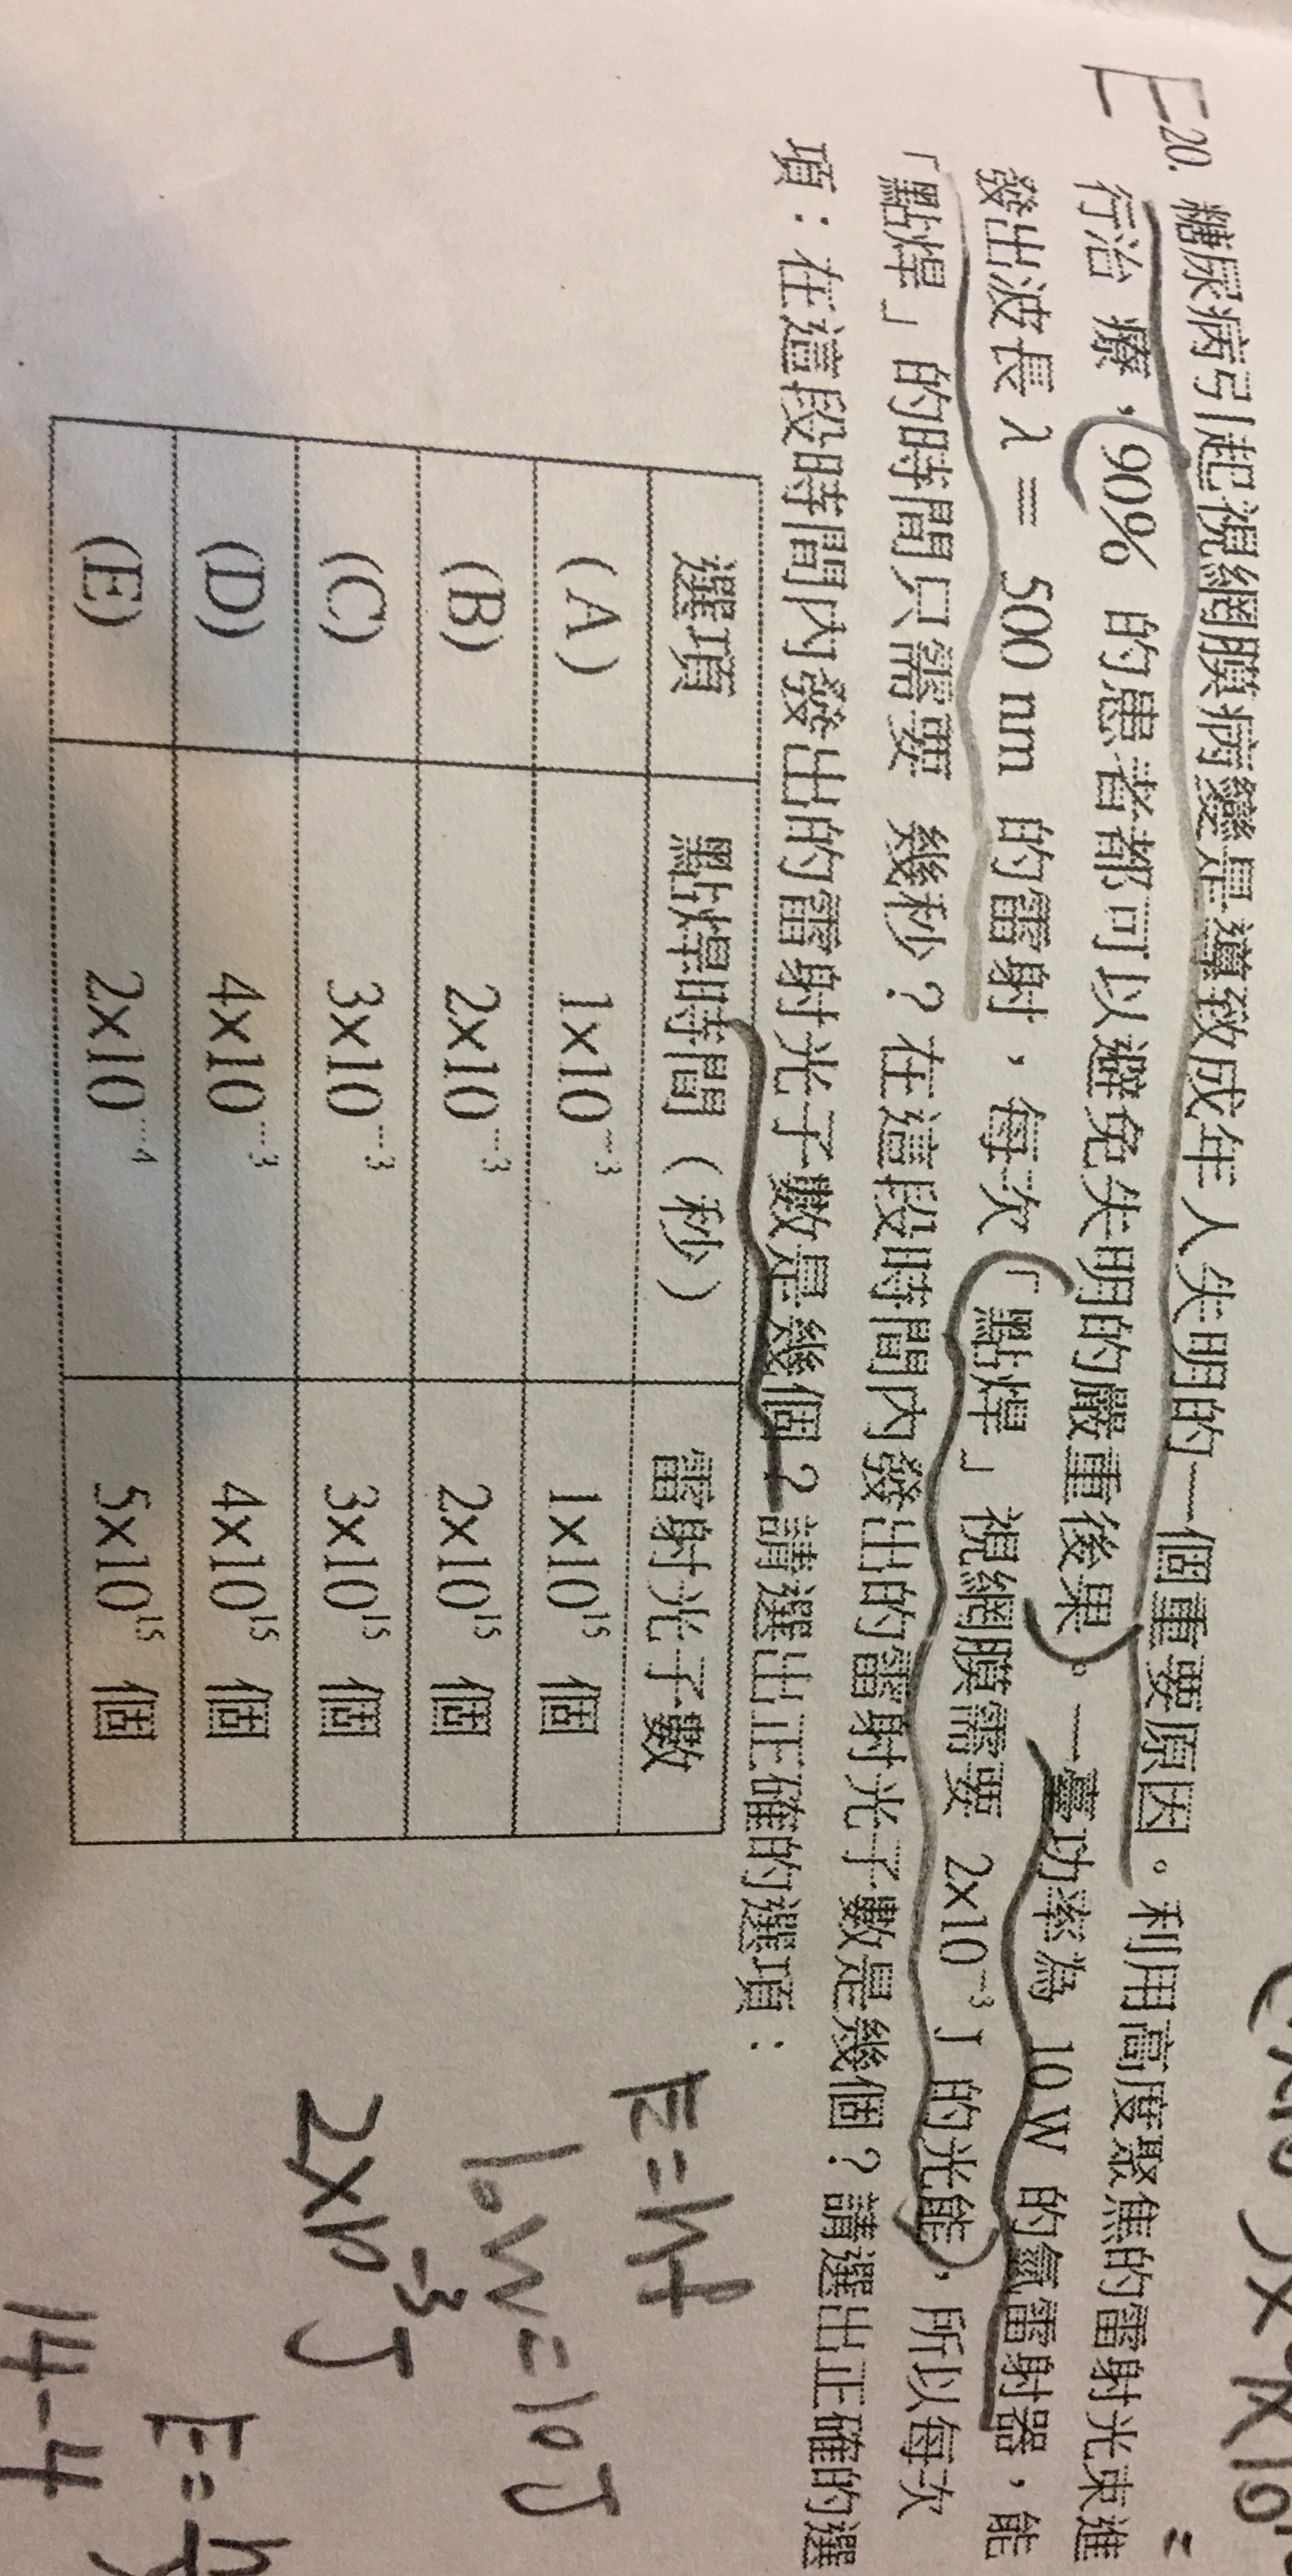 E 20. 糖尿病引起視網膜病變是導致成年人失明的一個重要原因。利用高度聚焦的雷射光束進
行治 療，90% 的患者都可以避免失明的嚴重後果。一臺功率為 10 W 的氬雷射器，能
發出波長 λ = 500 nm 的雷射，每次「點焊」視網膜需要 2x10⁻³ J 的光能，所以每次
「點焊」的時間只需要 幾秒？在這段時間內發出的雷射光子數是幾個？請選出正確的選
項：在這段時間內發出的雷射光子數是幾個？請選出正確的選項：
選項 點焊時間（秒） 雷射光子數
(A) 1x10⁻³ 1x10¹⁵ 個
(B) 2x10⁻³ 2x10¹⁵ 個
(C) 3x10⁻³ 3x10¹⁵ 個
(D) 4x10⁻³ 4x10¹⁵ 個
(E) 2x10⁻⁴ 5x10¹⁵ 個
E=hf
10W=10J
2x10⁻³J
14-4